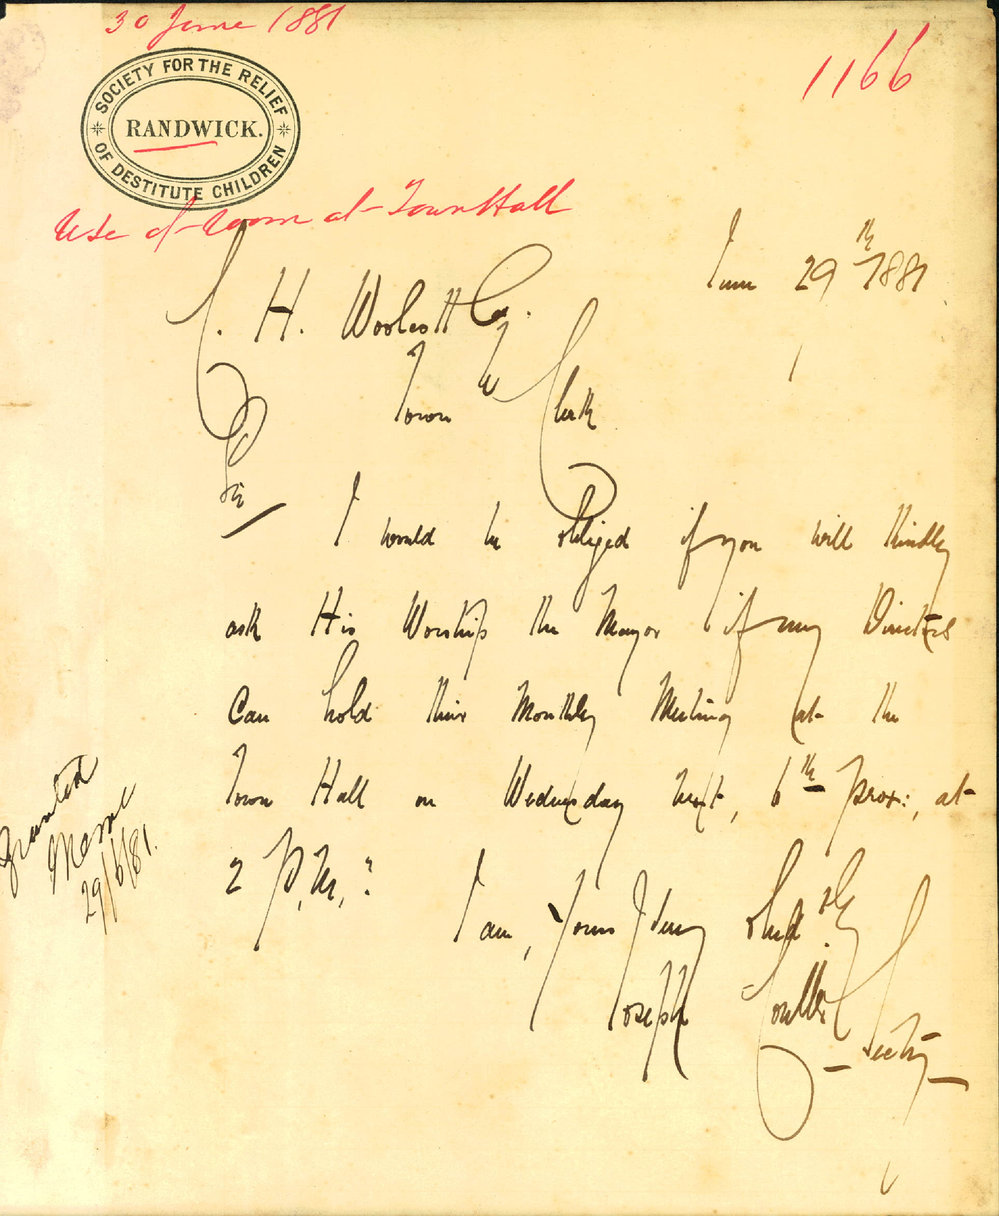 30 June 1881
1166
SOCIETY FOR THE RELIEF
OF DESTITUTE CHILDREN
RANDWICK.
Use of Room at Town Hall
June 29th 1881
C. H. Woolcott Esq.
Town Clerk
Sir
I would be obliged if you will kindly
ask His Worship the Mayor if my Directors
can hold their Monthly Meeting at the
Town Hall on Wednesday next, 6th prox:, at
2 P.M.,?
I am, Yours Very Obed.tly
Joseph Coulter
- Sectry -
Granted
29/6/81.